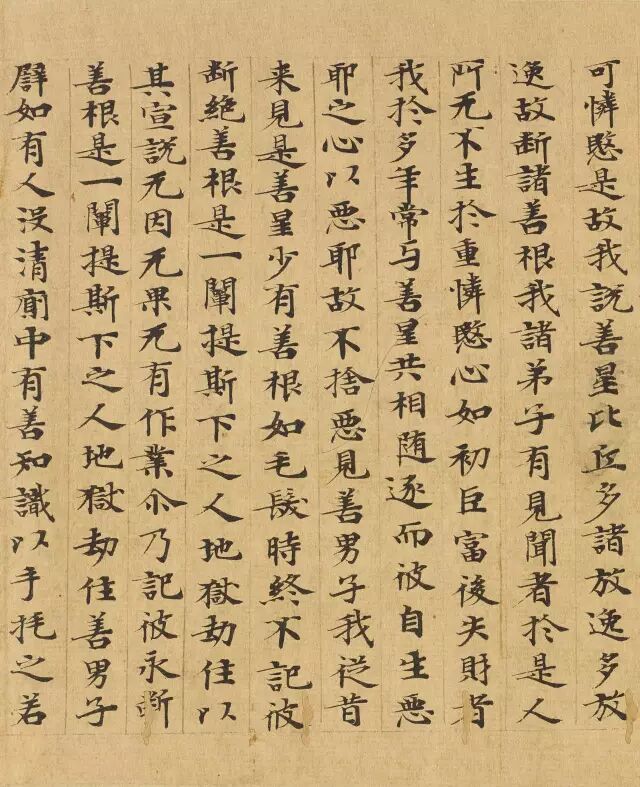 可憐愍是故我說善星比丘多諸放逸多放
逸故断諸善根我諸弟子有見聞者扵是人
所无不生扵重憐愍心如初巨富後失財者
我扵多年常与善星共相随逐而彼自生惡
耶之心以惡耶故不捨惡見善男子我従昔
来見是善星少有善根如毛髮時終不記彼
断絶善根是一闡提斯下之人地獄劫住以
其宣說无因无果无有作業尒乃記彼永断
善根是一闡提斯下之人地獄劫住善男子
譬如有人没清廁中有善知識以手撓之若